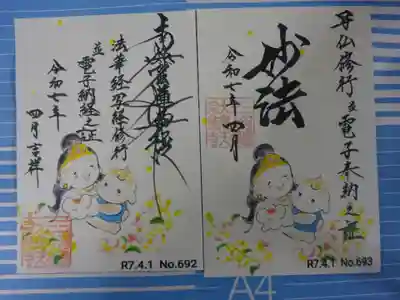 法華経写経修行
並電子納経之証
令和七年
四月吉祥
R7.4.1 No.692
写仏修行並電子奉納之証
妙法
令和七年四月
R7.4.1 No.693
A4